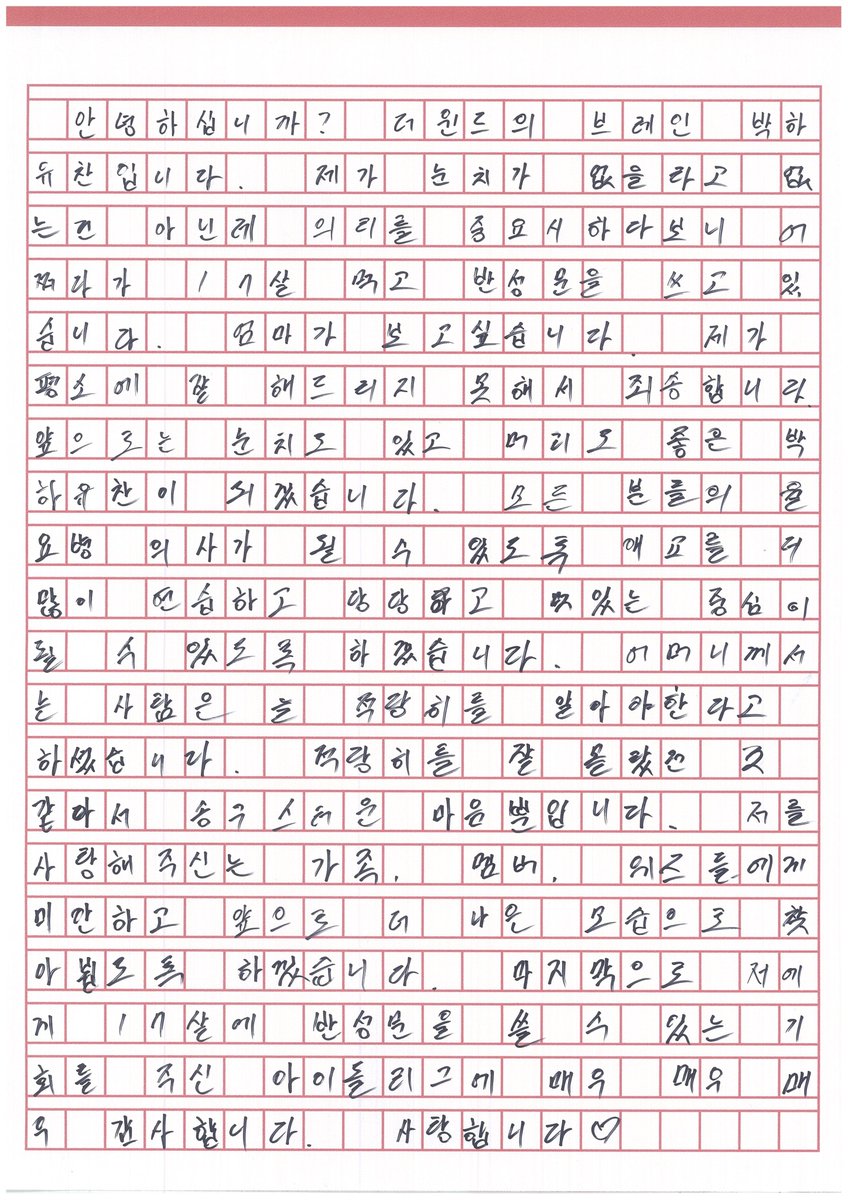 안녕하십니까? 더윈드의 브레인 박하
유찬입니다. 제가 눈치가 없을라고 없
는건 아닌데 의리를 중요시하다보니 어
쩌다가 17살 먹고 반성문을 쓰고 있
습니다. 엄마가 보고싶습니다. 제가
평소에 잘 해드리지 못해서 죄송합니다.
앞으로는 눈치도 있고 머리도 좋은 박
하유찬이 되겠습니다. 모든 분들의 월
요병 의사가 될 수 있도록 애교를 더
많이 연습하고 당당하고 멋있는 중심이
될 수 있도록 하겠습니다. 어머니께서
는 사람은 늘 적당히를 알아야한다고
하셨습니다. 적당히를 잘 몰랐던 것
같아서 송구스러운 마음뿐입니다. 저를
사랑해주신는 가족, 멤버, 위즈들에게
미안하고 앞으로 더 나은 모습으로 찾
아뵙도록 하겠습니다. 마지막으로 저에
게 17살에 반성문을 쓸 수 있는 기
회를 주신 아이돌리그에 매우 매우 매
우 감사합니다. 사랑합니다♡